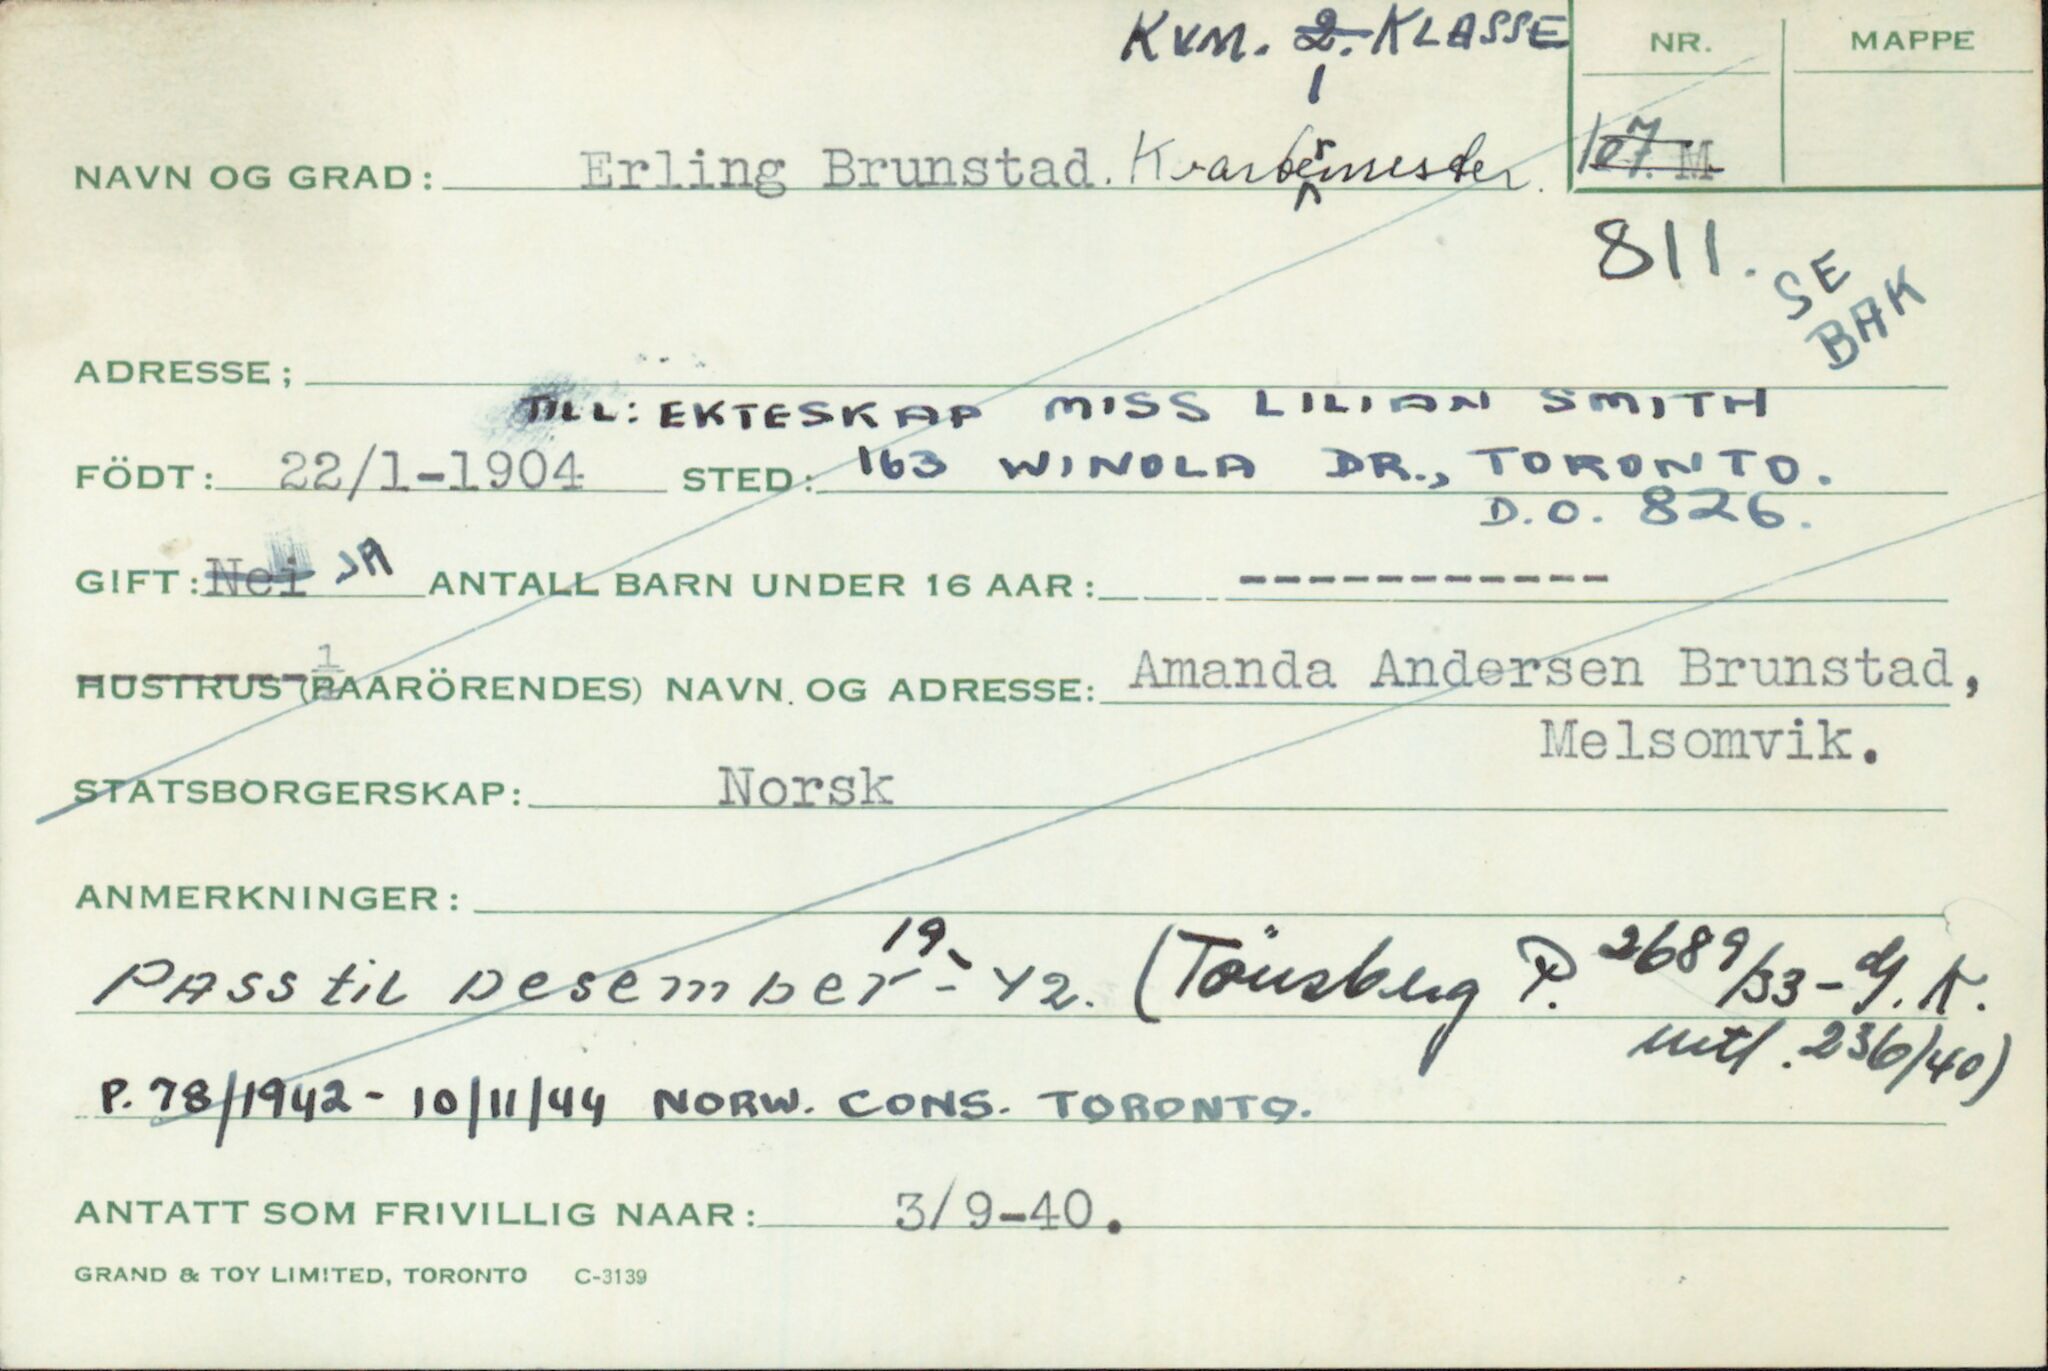 KVM. 2. KLASSE
1
NR. MAPPE
NAVN OG GRAD: Erling Brunstad. Kvartermester. 107. M
811.
SE
BAK
ADRESSE;
TILL: EKTESKAP MISS LILIAN SMITH
FÖDT: 22/1-1904 STED: 163 WINOLA DR., TORONTO.
D.O. 826.
GIFT: Nei JA ANTALL BARN UNDER 16 AAR: -----------
HUSTRUS (PAARÖRENDES) NAVN OG ADRESSE: Amanda Andersen Brunstad,
Melsomvik.
STATSBORGERSKAP: Norsk
ANMERKNINGER:
PASS til Desember 19-42. (Tönsberg P. 2689/33- G.K.
mtl. 236/40)
P. 78/1942- 10/11/44 NORW. CONS. TORONTO.
ANTATT SOM FRIVILLIG NAAR: 3/9-40.
GRAND & TOY LIMITED, TORONTO C-3139